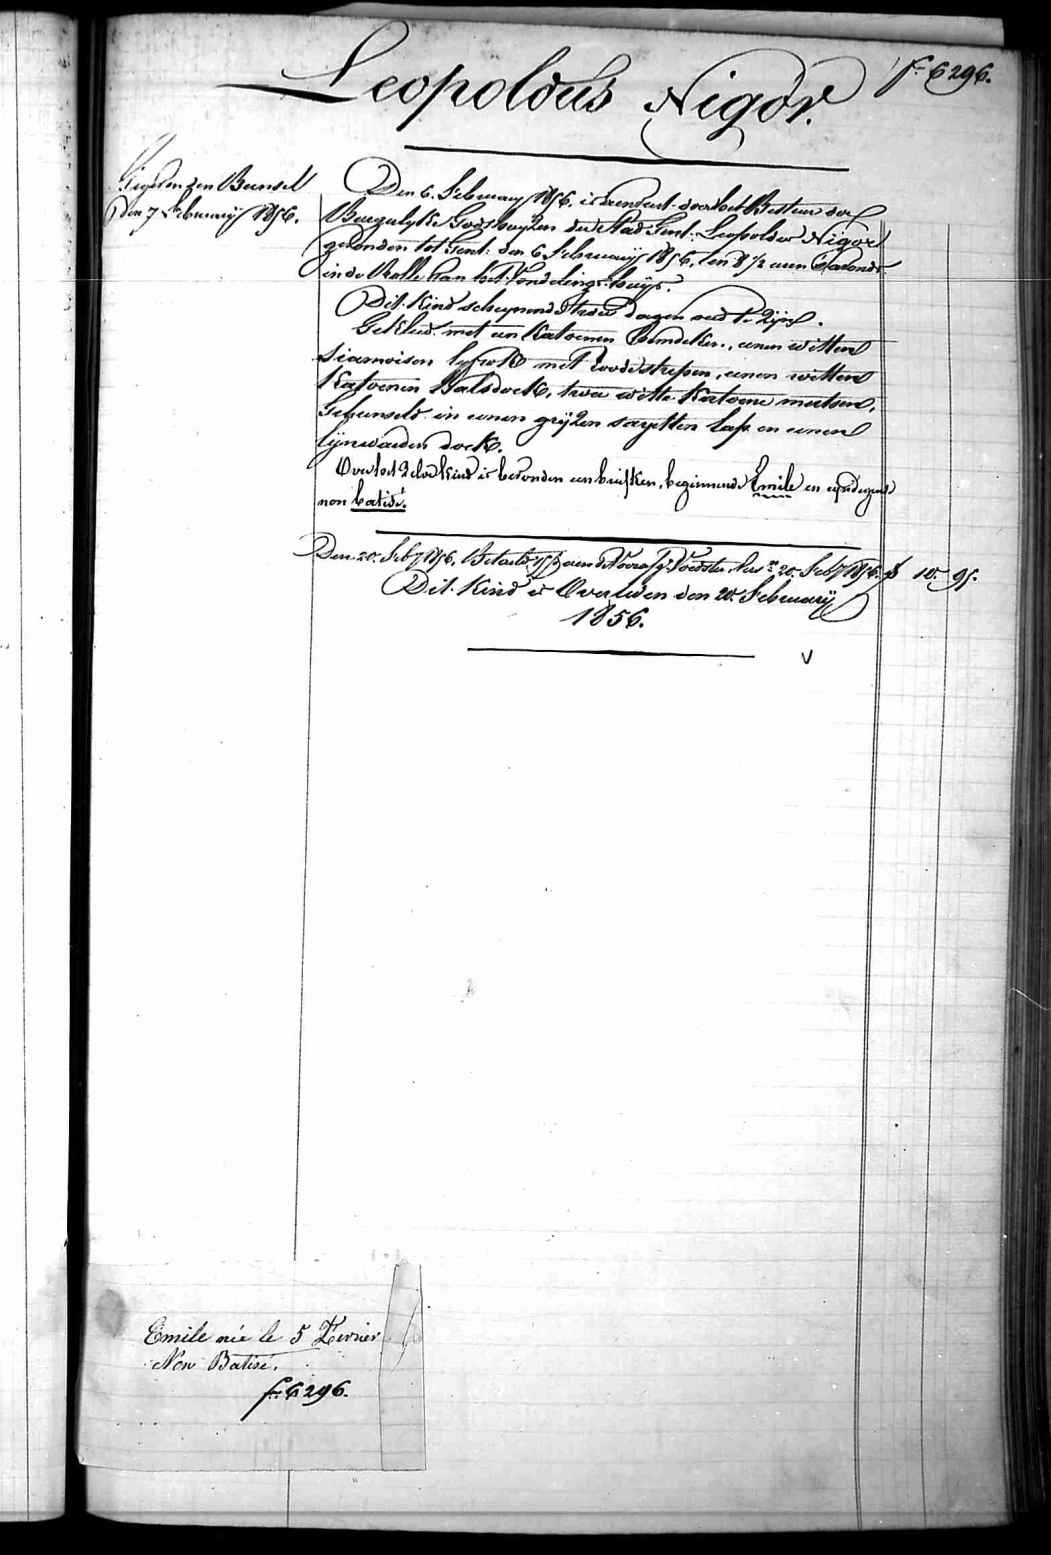 Leopoldus Nigor.
f° 6296.
den Bussel
Den 7 February 1856.
Den 6. February 1856. is present door het Bestuer der
Burgerlyke Godshuyzen der Stad Gent: Leopoldus Nigor
gevonden tot Gent: den 6 February 1856, ten 8 1/2 uren 's avonds
in de Rolle van het Vondelingshuys.
Dit Kind schynende twee dagen oud te zyn.
Gekleed met een Katoenen hemdeken, eenen witten
siamoisen lyfrok met roode strepen, eenen witten
Katoenen Halsdoek, twee witte Katoene mutsen,
Gebunseld in eenen gryzen sayetten lap en eenen
lynwaeden doek.
Over het zelve kind is bevonden een briefken, beginnende Emile en eyndigende
non batisé.
Den 20 Feby 1856, Betaeld aen de Voedster 20 Feby 1856. 10. 95.
Dit Kind is Overleden den 20 February
1856.
V
Emile née le 5 Fevrier
Non Batisé.
f° 6296.